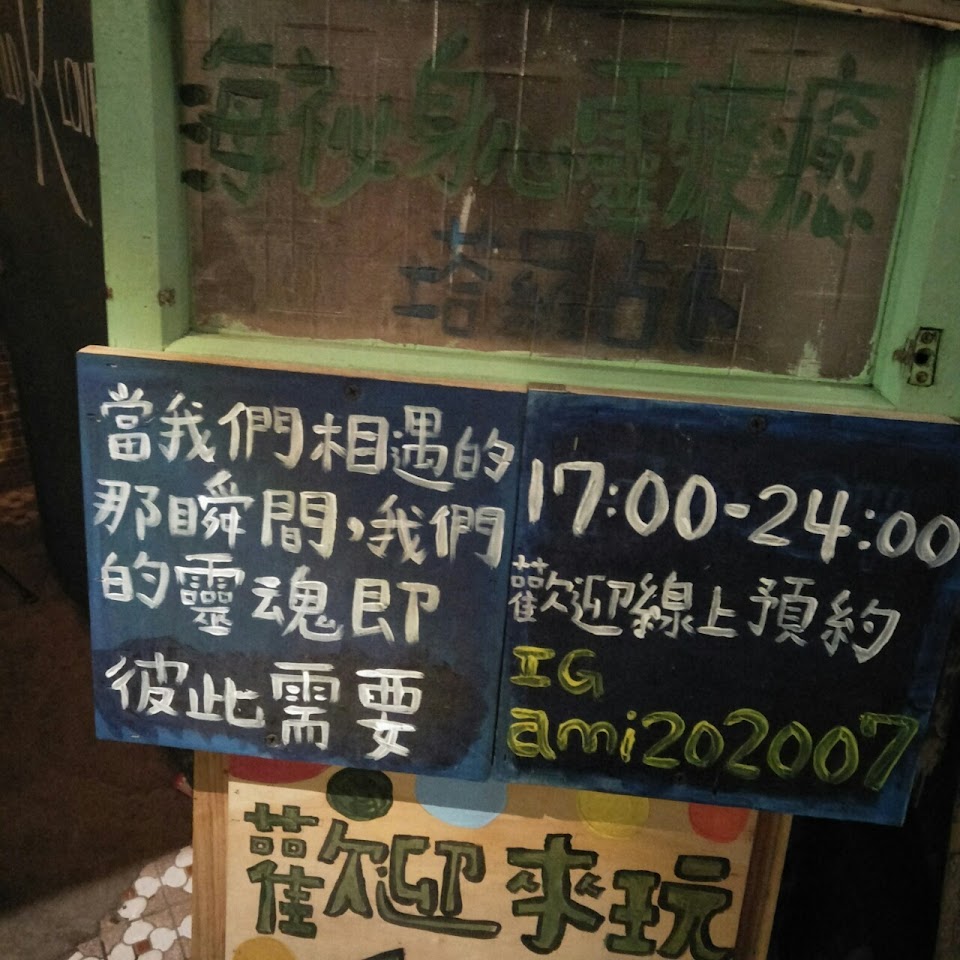 海祕身心靈療癒
塔羅占卜
當我們相遇的
那瞬間,我們
的靈魂即
彼此需要
17:00-24:00
歡迎線上預約
IG
ami202007
歡迎來玩